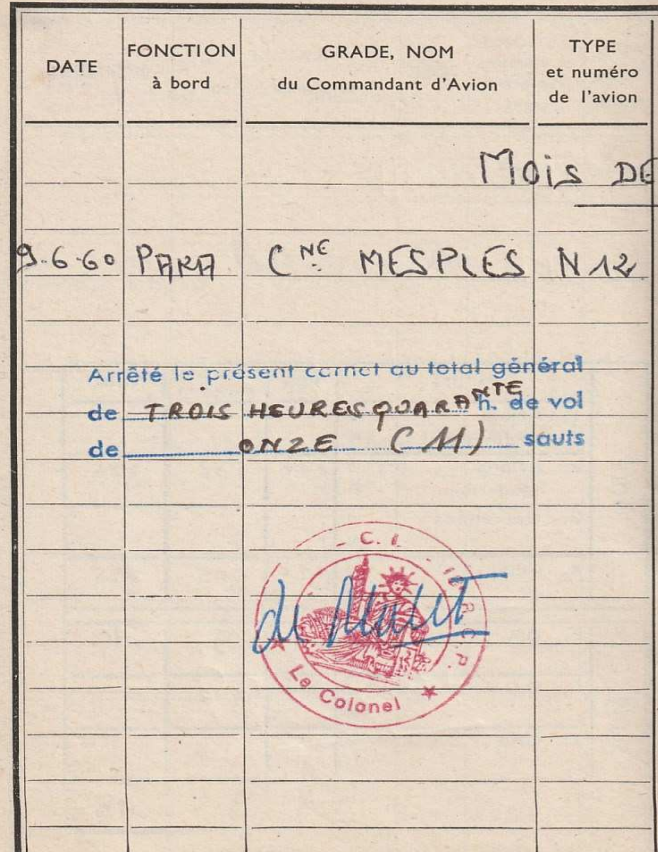 DATE
FONCTION
à bord
GRADE, NOM
du Commandant d'Avion
TYPE
et numéro
de l'avion
MOIS DE
9-6-60 PARA CNE MESPLES N 12
Arrêté le présent carnet au total général
de TROIS HEURES QUARANTE h. de vol
de ONZE (11) sauts
Le Colonel